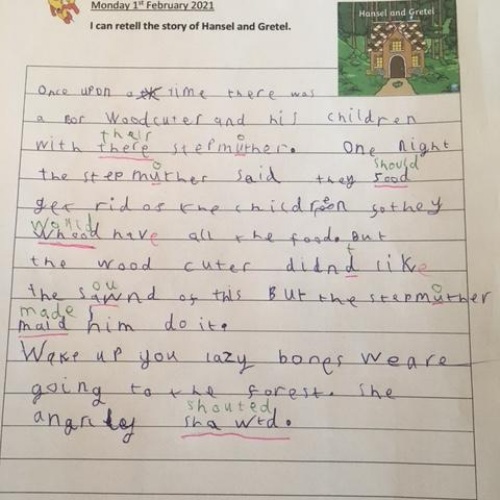 Monday 1st February 2021
I can retell the story of Hansel and Gretel.
Hansel and Gretel
Once upon a time there was
a por Woodcuter and his children
their
with there stepmuther. One night
o
should
the stepmuther said they sood
get rid of the children so they
would
whood have all the food. But
t
the wood cuter didnd like
ou
the sawnd of this But the stepmuther
made
maid him do it.
Wake up you lazy bones we are
going to the forest. she
shouted
angrily shawtd.